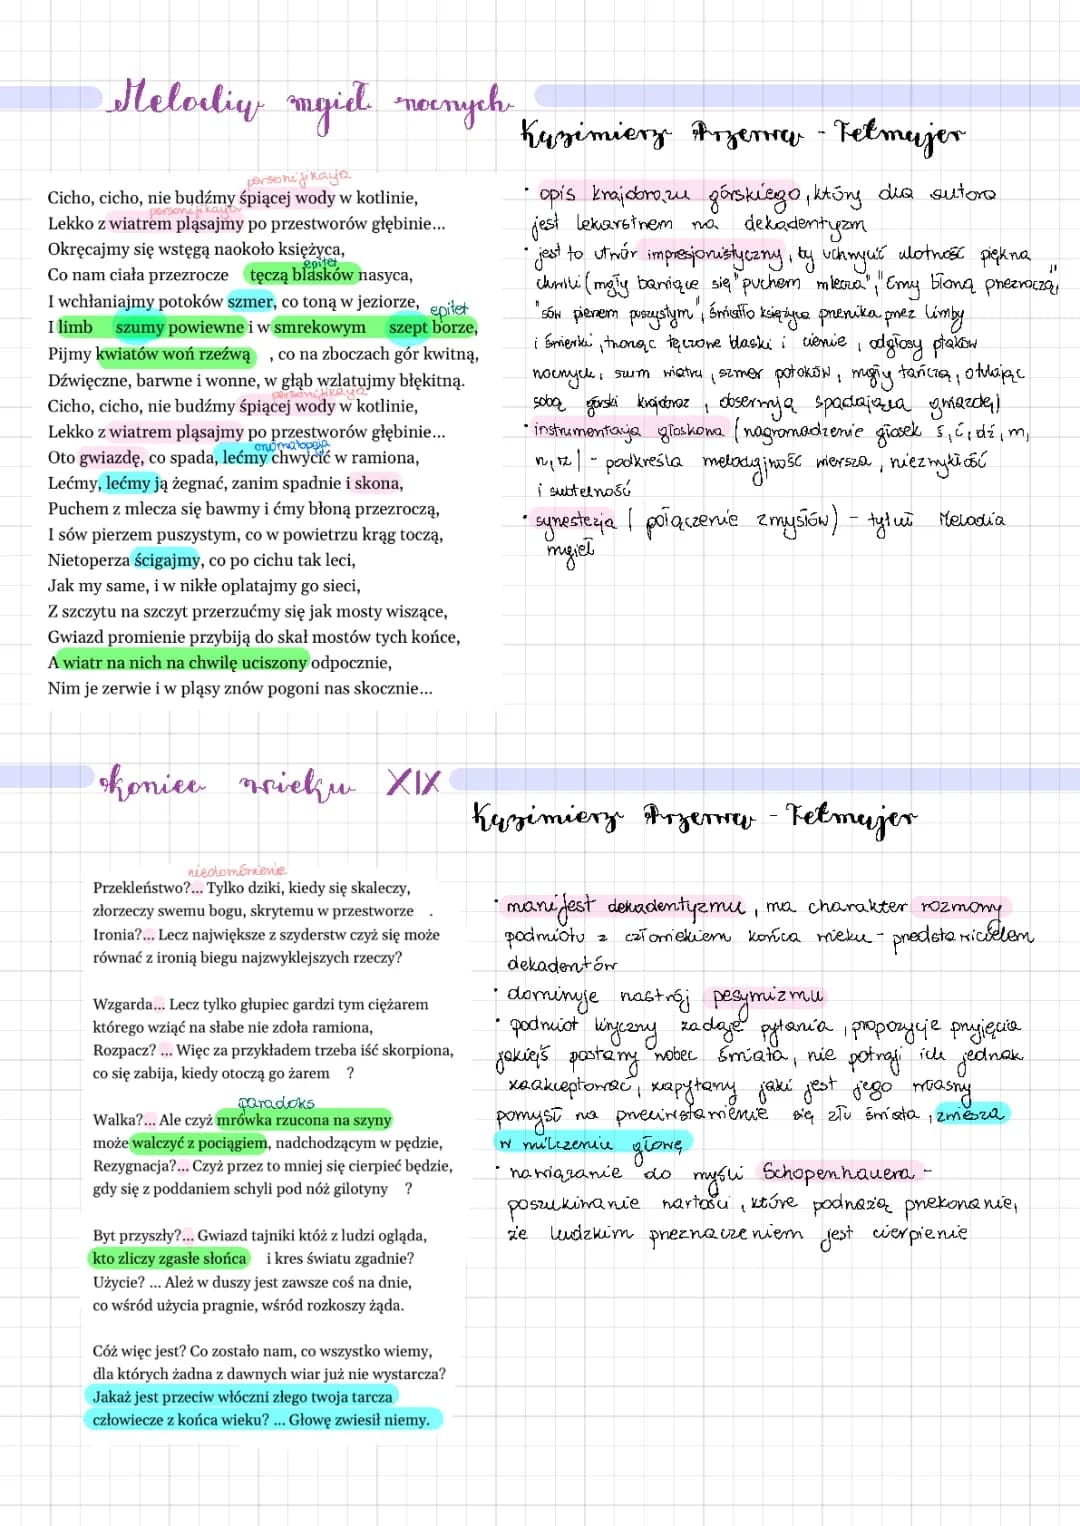 Melodia mgieł nocnych
Kazimierz Przerwa - Tetmajer
personifikacja
Cicho, cicho, nie budźmy śpiącej wody w kotlinie,
personifikacja
Lekko z wiatrem pląsajmy po przestworów głębinie...
Okręcajmy się wstęgą naokoło księżyca,
epitet
Co nam ciała przezrocze tęczą blasków nasyca,
I wchłaniajmy potoków szmer, co toną w jeziorze,
epitet
I limb szumy powiewne i w smrekowym szept borze,
Pijmy kwiatów woń rzeźwą , co na zboczach gór kwitną,
Dźwięczne, barwne i wonne, w głąb wzlatujmy błękitną.
personifikacja
Cicho, cicho, nie budźmy śpiącej wody w kotlinie,
Lekko z wiatrem pląsajmy po przestworów głębinie...
onomatopeja
Oto gwiazdę, co spada, lećmy chwycić w ramiona,
Lećmy, lećmy ją żegnać, zanim spadnie i skona,
Puchem z mlecza się bawmy i ćmy błoną przezroczą,
I sów pierzem puszystym, co w powietrzu krąg toczą,
Nietoperza ścigajmy, co po cichu tak leci,
Jak my same, i w nikłe oplatajmy go sieci,
Z szczytu na szczyt przerzućmy się jak mosty wiszące,
Gwiazd promienie przybiją do skał mostów tych końce,
A wiatr na nich na chwilę uciszony odpocznie,
Nim je zerwie i w pląsy znów pogoni nas skocznie...
• opis krajobrazu górskiego, który dla autora
jest lekarstwem na dekadentyzm
• jest to utwór impresjonistyczny, by uchwycić ulotność piękna
chwili (mgły bawiące się "puchem mlecza", "ćmy błoną przezroczą",
"sów pierzem puszystym", światło księżyca przenika przez limby
i świerki, tworząc tęczowe blaski i cienie, odgłosy ptaków
nocnych, szum wiatru, szmer potoków, mgły tańczą, otulając
sobą górski krajobraz, obserwują spadającą gwiazdę)
• instrumentacja głoskowa (nagromadzenie głosek ś, ć, dź, m,
n, rz) - podkreśla melodyjność wiersza, niezwykłość
i subtelność
• synestezja (połączenie zmysłów) - tytuł Melodia
mgieł
Koniec wieku XIX
Kazimierz Przerwa - Tetmajer
niedomówienie
Przekleństwo?... Tylko dziki, kiedy się skaleczy,
złorzeczy swemu bogu, skrytemu w przestworze .
Ironia?... Lecz największe z szyderstw czyż się może
równać z ironią biegu najzwyklejszych rzeczy?
Wzgarda... Lecz tylko głupiec gardzi tym ciężarem
którego wziąć na słabe nie zdoła ramiona,
Rozpacz? ... Więc za przykładem trzeba iść skorpiona,
co się zabija, kiedy otoczą go żarem ?
paradoks
Walka?... Ale czyż mrówka rzucona na szyny
może walczyć z pociągiem, nadchodzącym w pędzie,
Rezygnacja?... Czyż przez to mniej się cierpieć będzie,
gdy się z poddaniem schyli pod nóż gilotyny ?
Byt przyszły?... Gwiazd tajniki któż z ludzi ogląda,
kto zliczy zgasłe słońca i kres światu zgadnie?
Użycie? ... Ależ w duszy jest zawsze coś na dnie,
co wśród użycia pragnie, wśród rozkoszy żąda.
Cóż więc jest? Co zostało nam, co wszystko wiemy,
dla których żadna z dawnych wiar już nie wystarcza?
Jakaż jest przeciw włóczni złego twoja tarcza
człowiecze z końca wieku? ... Głowę zwiesił niemy.
• manifest dekadentyzmu, ma charakter rozmowy
podmiotu z człowiekiem końca wieku - przedstawicielem
dekadentów
• dominuje nastrój pesymizmu
• podmiot liryczny zadaje pytania, propozycje przyjęcia
jakiejś postawy wobec świata, nie potrafi ich jednak
zaakceptować, zapytany jaki jest jego własny
pomysł na przeciwstawienie się złu świata, zwiesza
w milczeniu głowę
• nawiązanie do myśli Schopenhauera -
poszukiwanie wartości, które podważą przekonanie,
że ludzkim przeznaczeniem jest cierpienie